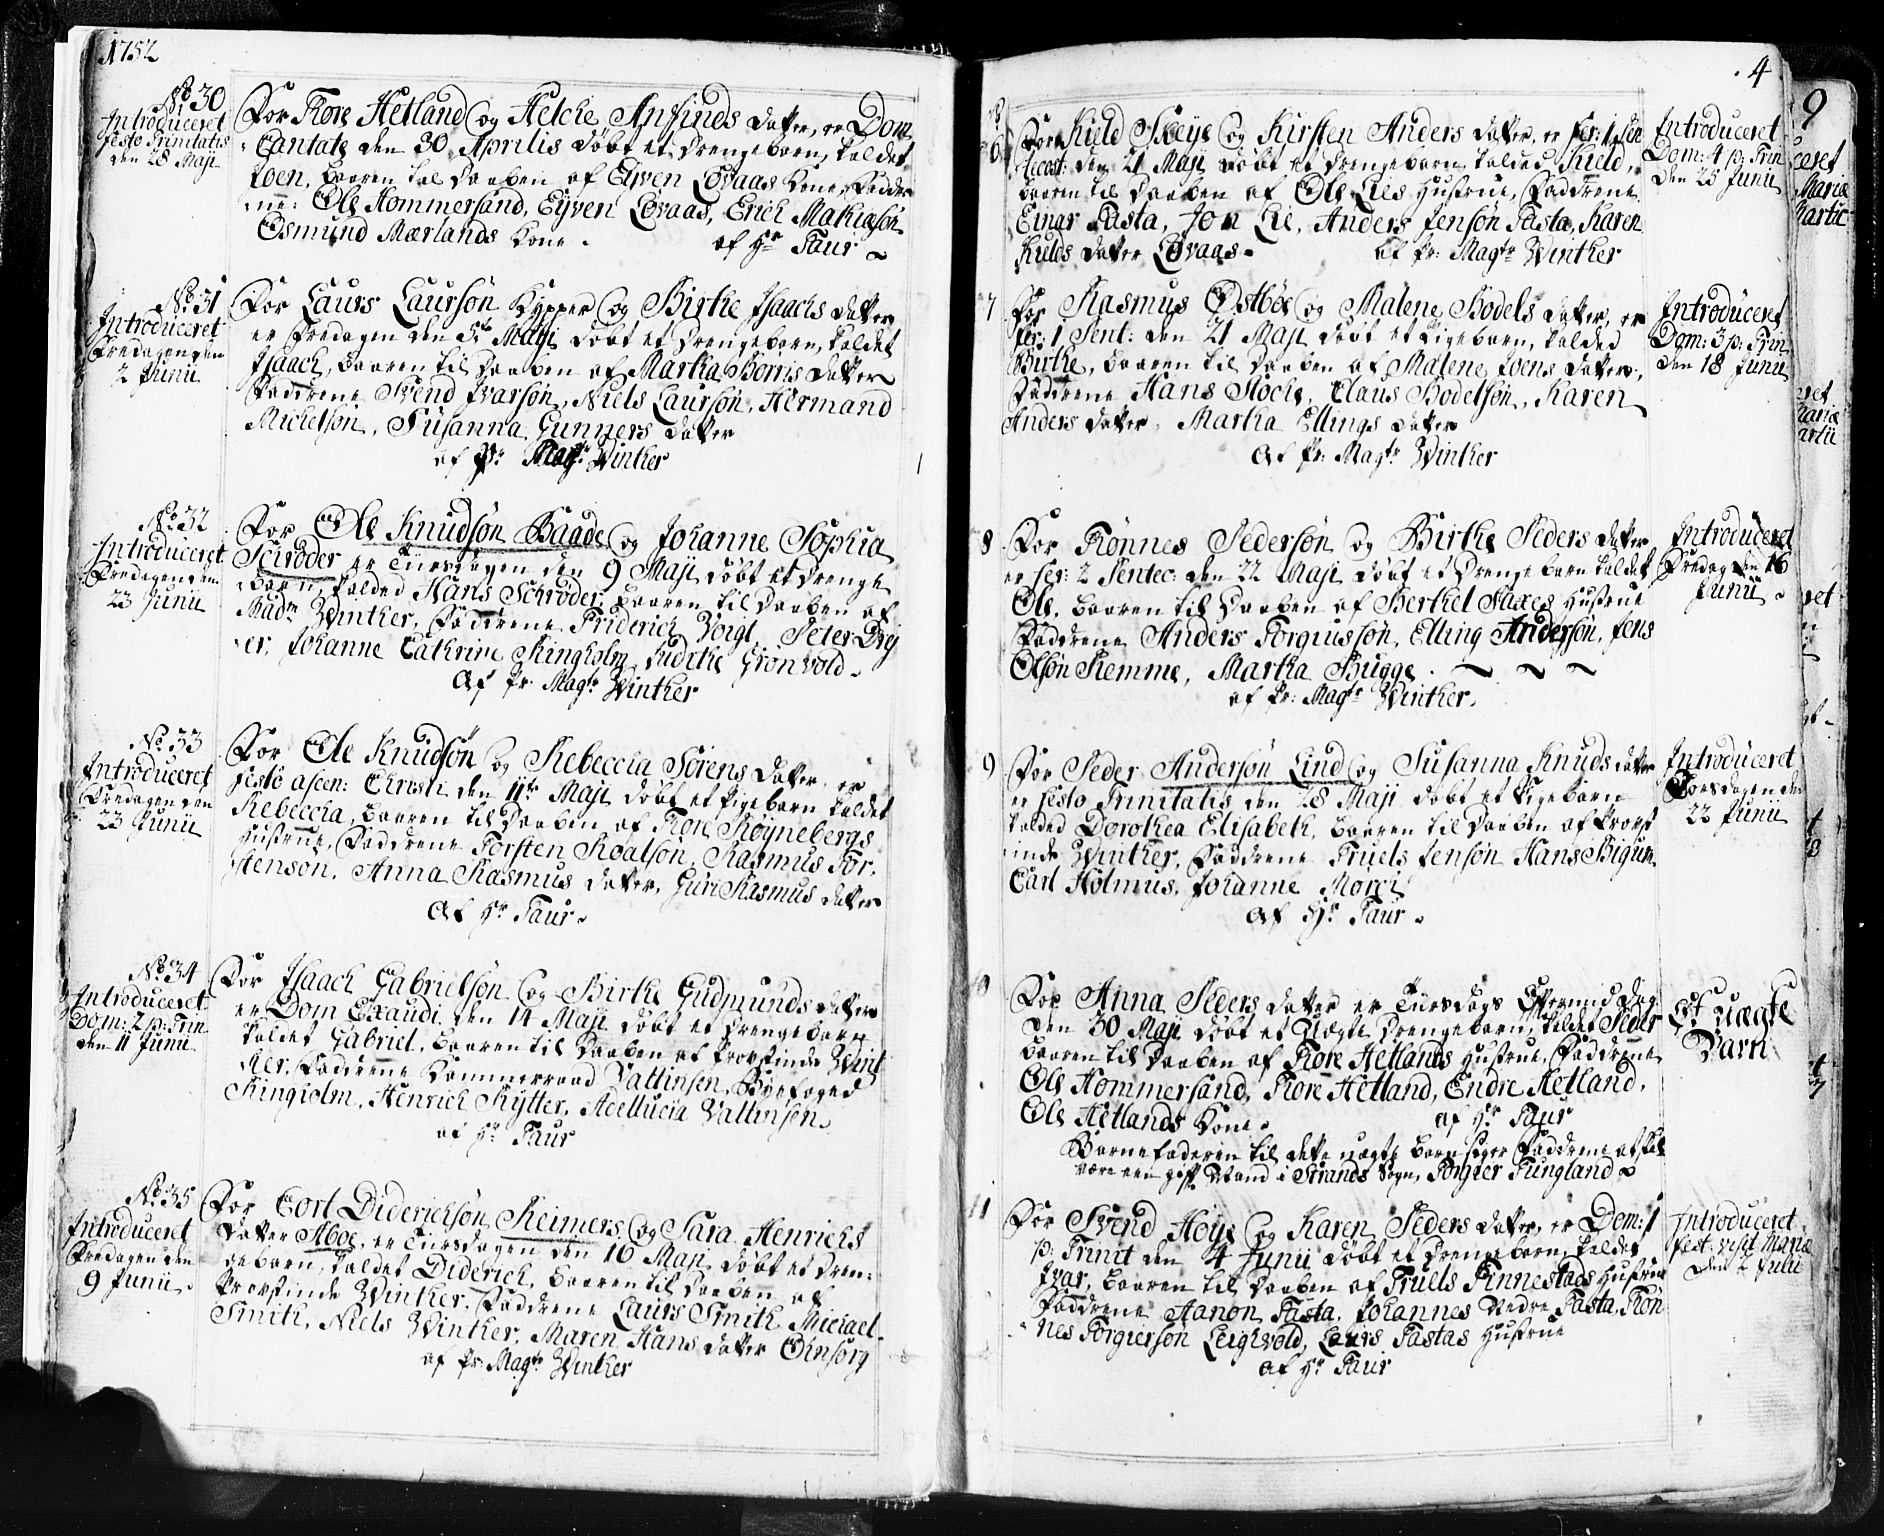 1752
No 30
Introduceret
Festo Trinitatis
den 28 Maji
For Tore Hetland og Helche Ansinds datter, er Dom
Cantate den 30 Aprilis döbt et drengebarn, kaldet
Joen, baaren til daaben af Eyven Lövaas Kone, Faddre
ne: Ole Hommersand, Eyven Lövaas, Erich Mathiasön
Osmund Mærlands Kone.
af Hr Faur
No 31
Introduceret
Fredagen den
2 Junii
For Laurs Laursön Kypper og Birthe Isaachs datter
er Fredagen den 5te Maji döbt et drengebarn, kaldet
Isaach, baaren til daaben af Martha Börris datter
Faddrene Svend Ivarsön, Niels Laursön, Hermand
Michelsön, Susanna Gunners datter
af Pr Magr Winther
No 32
Introduceret
Fredagen den
23 Junii
For Ole Knudsön Baade og Johanne Sophia
Schröder er Tiirsdagen den 9 Maji döbt et drenge
barn, kalded Hans Schröder, baaren til daaben af
Madm Winther, Faddrene Friderich Voigt, Peter Drej
er, Johanne Cathrine Ringholm, Judithe Grönvold.
Af Pr: Magr Winther
No 33
Introduceret
Fredagen den
23 Junii
For Ole Knudsön og Rebeccia Sörens datter, er
Festo ascen: Christi den 11te Maji döbt et Pigebarn kaldet
Rebeccia, baaren til daaben af Tore Röynebergs
Hustrue, Faddrene Torsten Roalsön, Rasmus Tor.
stensön, Anna Rasmus datter, Guri Rasmus datter
Af Hr Faur.
No 34
Introduceret
Dom: 2 p: Trin
den 11 Junii
For Isaach Gabrielsön og Birthe Gudmunds datter
er Dom Exaudi den 14 Maji döbt et drengebarn
kaldet Gabriel, baaren til daaben af Provstinde Wint
her, Faddrene Kammerraad Valtinsen, Byefoged
Ringholm, Henrich Rytter, Adellucia Valtinsen.
af Hr Faur
No 35
Introduceret
Fredagen den
9 Junii.
For Cort Diderichsön Reimers og Sara Henrichs
datter Aboe, er Tiirsdagen den 16 Maji döbt et dren:
gebarn, kaldet Diderich, baaren til daaben af
Provstinde Winther, Faddrene Laurs Smith, Michael
Smith, Niels Winther, Maren Hans datter Oinsorg
af Pr: Magr Winther
4
6
For Kield Skeye og Kirsten Anders datter, er Fer: 1 Pen
tecost: den 21 Maji döbt et drengebarn kalded Kield,
baaren til daaben af Ole Lies Hustrue, Faddrene
Einar Tasta, Jon Lie, Anders Jensön Tasta, Karen
Kields datter Lövaas.
af Pr: Magr Winther
Introduceret
Dom: 4 p: Trin
den 25 Junii
7
For Rasmus Östböe og Malene Bodels datter, er
Fer: 1 Pent: den 21 Maji döbt et Pigebarn, kalded
Birthe, baaren til daaben af Malene Joens datter,
Faddrene Hans Stoche, Claus Bodelsön, Karen
Anders datter, Martha Ellings datter
Af Pr: Magtr Winther
Introduceret
Dom: 3 p: Trin
den 18 Junii
8
For Tönnes Pedersön og Birthe Peders datter
er Fer: 2 Pentec: den 22 Maji döbt et drengebarn kaldet
Ole, baaren til daaben af Berthel Saxes Hustrue
Faddrene Anders Torgiussön, Elling Andersön, Jens
Olsön Remme, Martha Bugge.
af Pr: Magtr Winther.
Introduceret
Fredag den 16
Junii
9
For Peder Andersön Lind og Susanna Knuds datter
er Festo Trinitatis den 28 Maji döbt et Pigebarn
kalded Dorothea Elisabeth, baaren til daaben af Provst
inde Winther, Faddrene Truels Jensön Hans Bigum
Carl Holmus, Johanne Morch
Af Hr Faur.
Introduceret
Torsdagen den
22 Junii
For Anna Peders datter er Tiirsdags Eftermid Dag
den 30 Maji döbt et Uægte drengebarn, kaldet Peder
baaren til daaben af Tore Hetlands Hustrue, Faddrene
Ole Hommersand, Tore Hetland, Endre Hetland,
Ole Hetlands Kone.
af Hr Faur
Barnefaderen til dette uægte barn siger Faddrene at skal
være een gift Mand i Strands Sogn, Torgier Tungland
Et uægte
Barn
11
For Svend Höye og Karen Peders datter, er Dom: 1
p: Trinit den 4 Junii döbt et drengebarn, kaldet
Ivar, baaren til daaben af Truels Finnestads Hustrue
Faddrene Hanon Tasta, Johannes Nedre Tasta, Tön
nes Torgiersön Leighvold, Laurs Tastas Hustrue
af Hr Faur
Introduceret
Fest: visit Mariæ
den 2 Julii
9